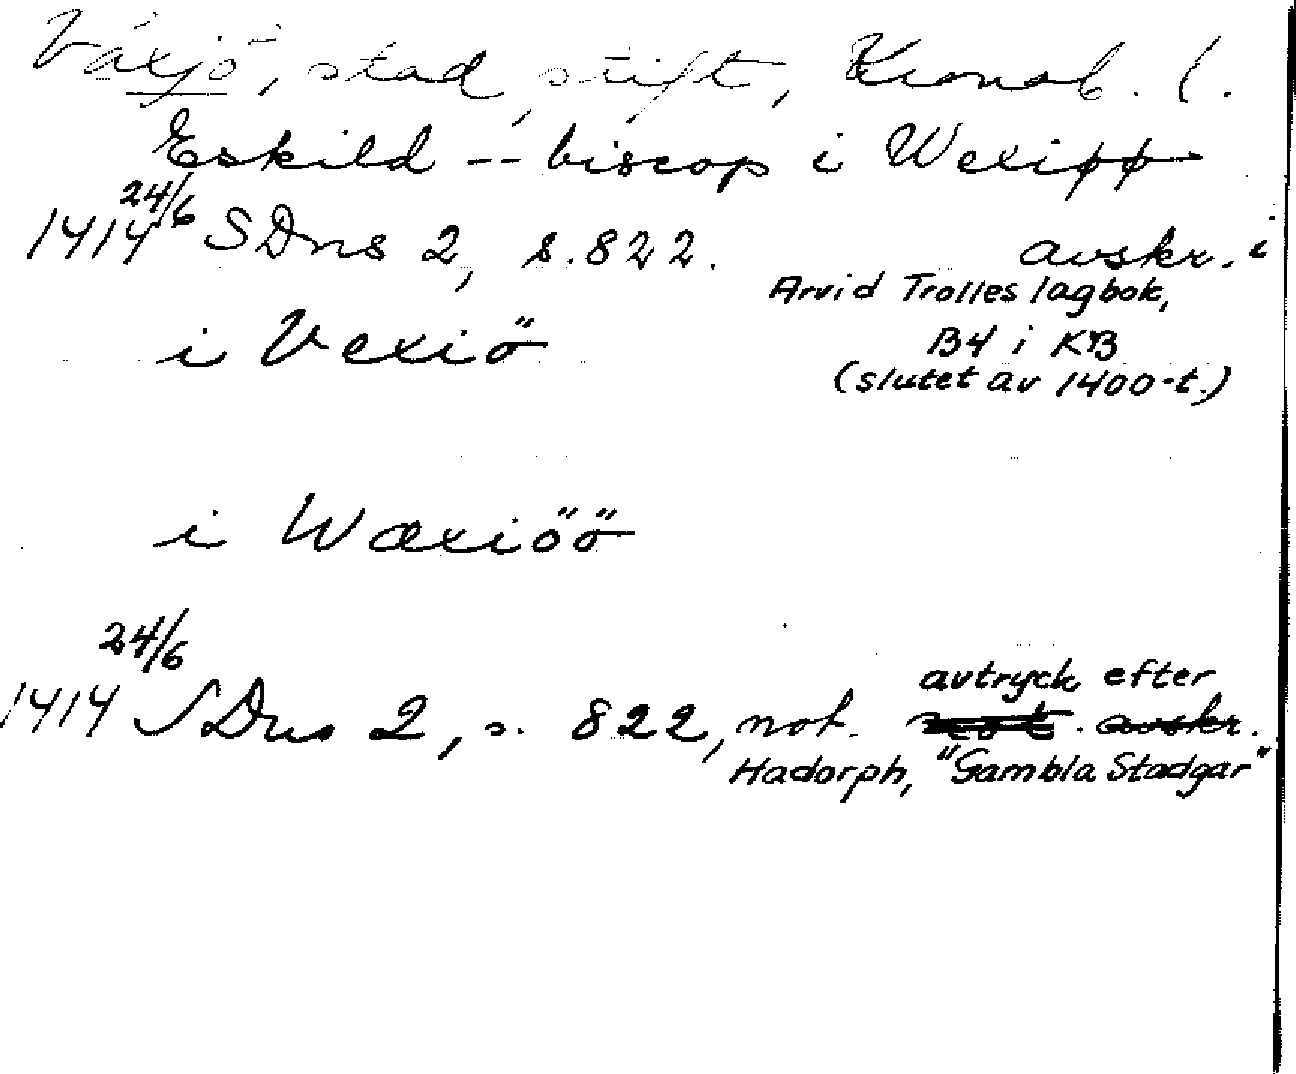 Växjö, stad, stift, Kronob. l.
Eskild -- biscop i Wexiøø
1414 24/6 SDns 2, s. 822. avskr. i
Arvid Trolles lagbok,
i Vexiö
B4 i KB
(slutet av 1400-t.)
i Wæxiöö
24/6
avtryck efter
1414 SDns 2, s. 822, not. avskr.
Hadorph, "Gambla Stadgar"